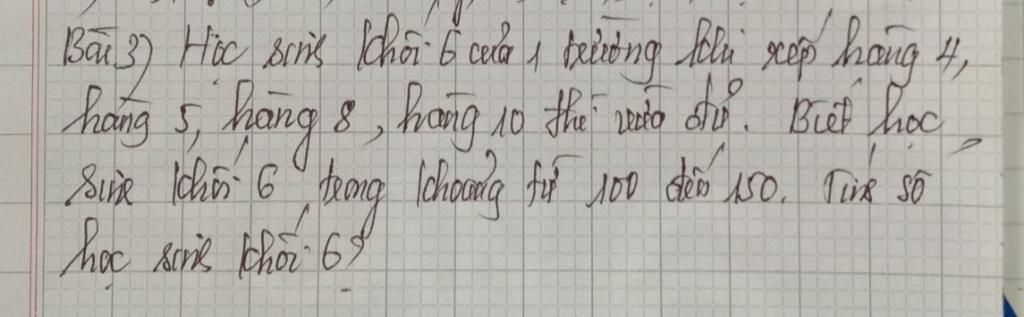 Bài 3) Học sinh khối 6 của 1 trường khi xếp hàng 4,
hàng 5, hàng 8, hàng 10 thì vừa đủ. Biết học
sinh khối 6 trong khoảng từ 100 đến 150. Tính số
học sinh khối 6?